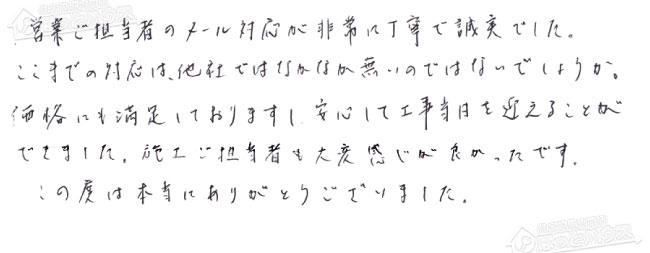 営業ご担当者のメール対応が非常に丁寧で誠実でした。
ここまでの対応は、他社ではなかなか無いのではないでしょうか。
価格にも満足しておりますし、安心して工事当日を迎えることが
できました。施工ご担当者も大変感じが良かったです。
この度は本当にありがとうございました。